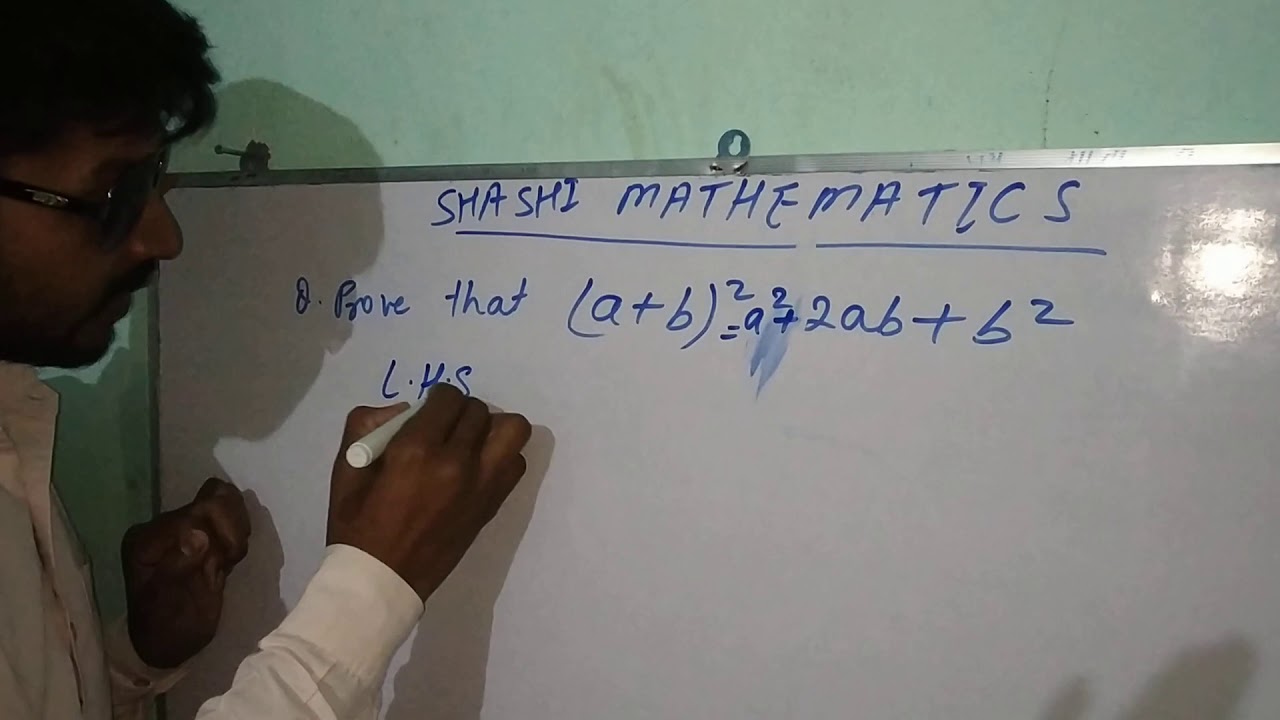 SHASHI MATHEMATICS
Q. Prove that (a+b)²=a²+2ab+b²
L.H.S